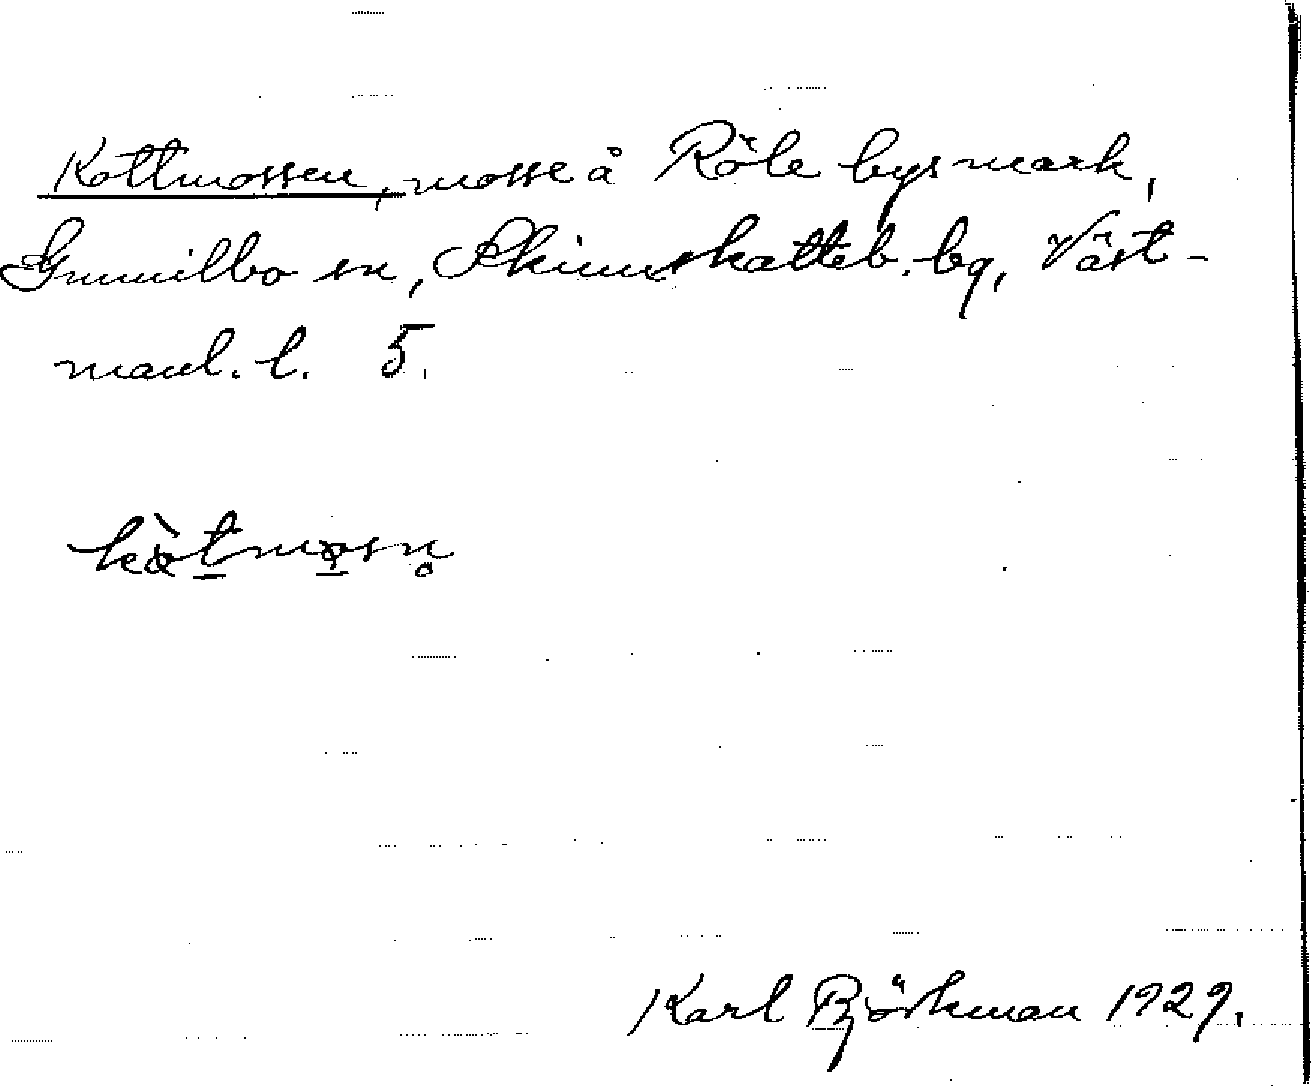 Kottmossen, mosse å Röle bys mark,
Gunnilbo sn, Skinnskatteb. bg, Väst-
manl. l. 5.
Karl Björkman 1929.